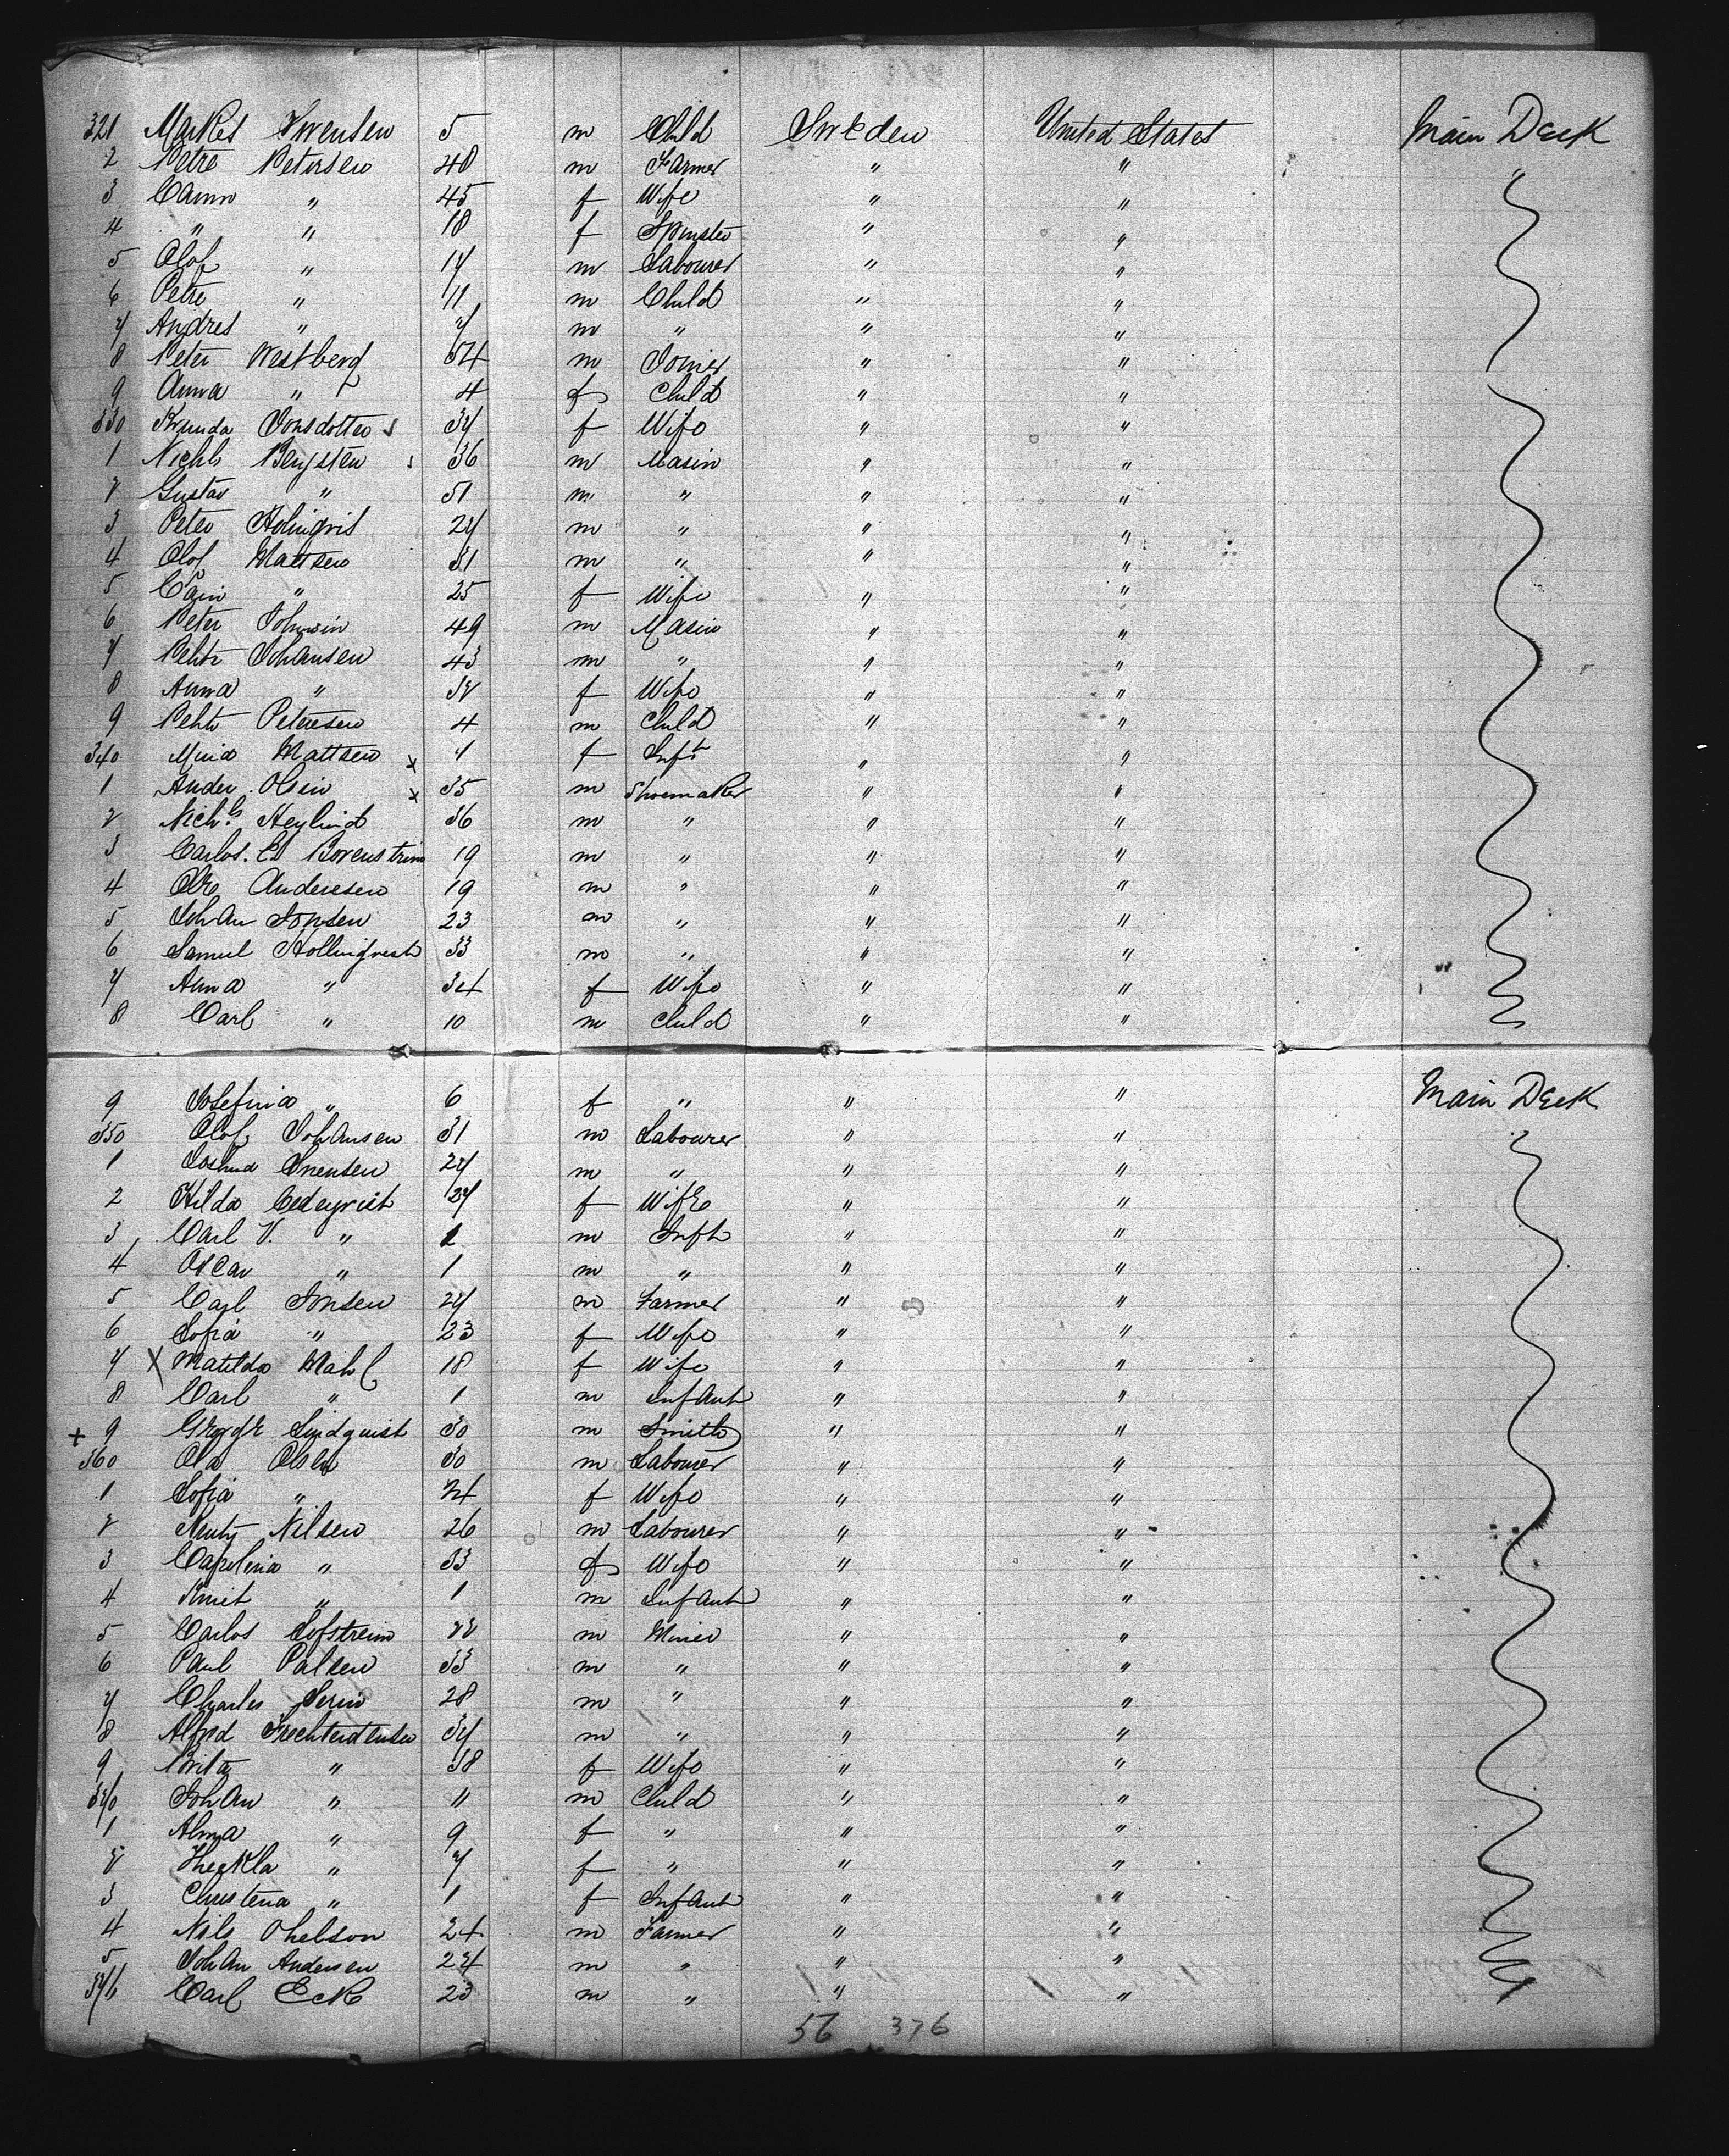 321 Markes Swensen 5 m Child Sweden United States Main Deck
2 Petre Petersen 48 m Farmer " "
3 Cann " 45 f Wife " "
4 " " 18 f Spinster " "
5 Olof " 14 m Labourer " "
6 Petre " 11 m Child " "
7 Andres " 7 m " " "
8 Peter Westberg 34 m Joiner " "
9 Anna " 4 f Child " "
330 Jonsdotter 37 f Wife " "
1 Nichls Bengsten 36 m Masin " "
2 Gustav " 31 m " " "
3 Peter 27 m " " "
4 Olof Mattsen 31 m " " "
5 Cain " 25 f Wife " "
6 Peter 49 m Masin " "
7 Pehtr Johansen 43 m " " "
8 Anna " 32 f Wife " "
9 Pehtr Petersen 4 m Child " "
340 Mina Mattsen x 1 f Inft " "
1 Ander Olsin x 35 m Shoemaker " "
2 Nichls 36 m " " "
3 Carlos. Ed 19 m " " "
4 Ole Andersen 19 m " " "
5 Johan Jonsen 23 m " " "
6 Samuel Hollingvest 33 m " " "
7 Anna " 34 f Wife " "
8 Carl " 10 m Child " "
9 Josefina " 6 f " " " Main Deck
350 Olof Johansen 31 m Labourer " "
1 27 m " " "
2 Hilda 27 f Wife " "
3 Carl V. " 2 m Inft " "
4 Oscar " 1 m " " "
5 Carl Jonsen 27 m Farmer " "
6 Sofia " 23 f Wife " "
7 x Matilda Mahl 18 f Wife " "
8 Carl " 1 m Infant " "
+ 9 George Lindquist 30 m Smith " "
360 Ola Olsen 30 m Labourer " "
1 Sofia " 24 f Wife " "
2 Nilsen 26 m Labourer " "
3 Carolina " 33 f Wife " "
4 " 1 m Infant " "
5 Carlos Lofstrem 22 m Miner " "
6 Paul Palsen 33 m " " "
7 Charles 28 m " " "
8 Alfred 37 m " " "
9 Brita " 38 f Wife " "
370 Johan " 11 m Child " "
1 Alma " 9 f " " "
2 Heckla " 7 f " " "
3 Christena " 1 f Infant " "
4 Nils Ohelson 24 m Farmer " "
5 Johan Andersen 27 m " " "
376 Carl Eck 23 m " " "
56 376